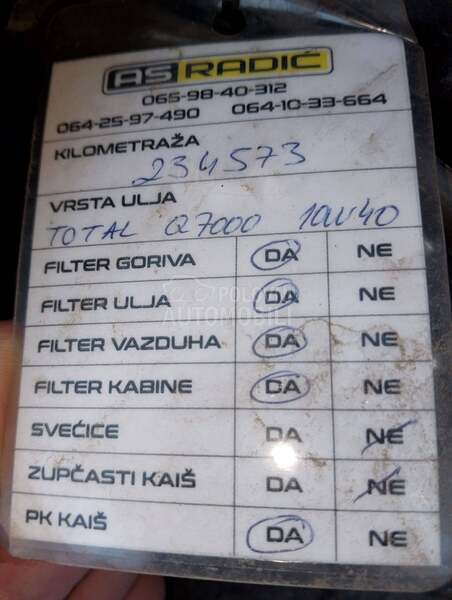 AS RADIĆ
065-98-40-312
064-25-97-490 064-10-33-664
KILOMETRAŽA
234573
VRSTA ULJA
TOTAL Q7000 10W40
FILTER GORIVA DA NE
FILTER ULJA DA NE
POLOVNI AUTOMOBILI
FILTER VAZDUHA DA NE
FILTER KABINE DA NE
SVEĆICE DA NE
ZUPČASTI KAIŠ DA NE
PK KAIŠ DA NE